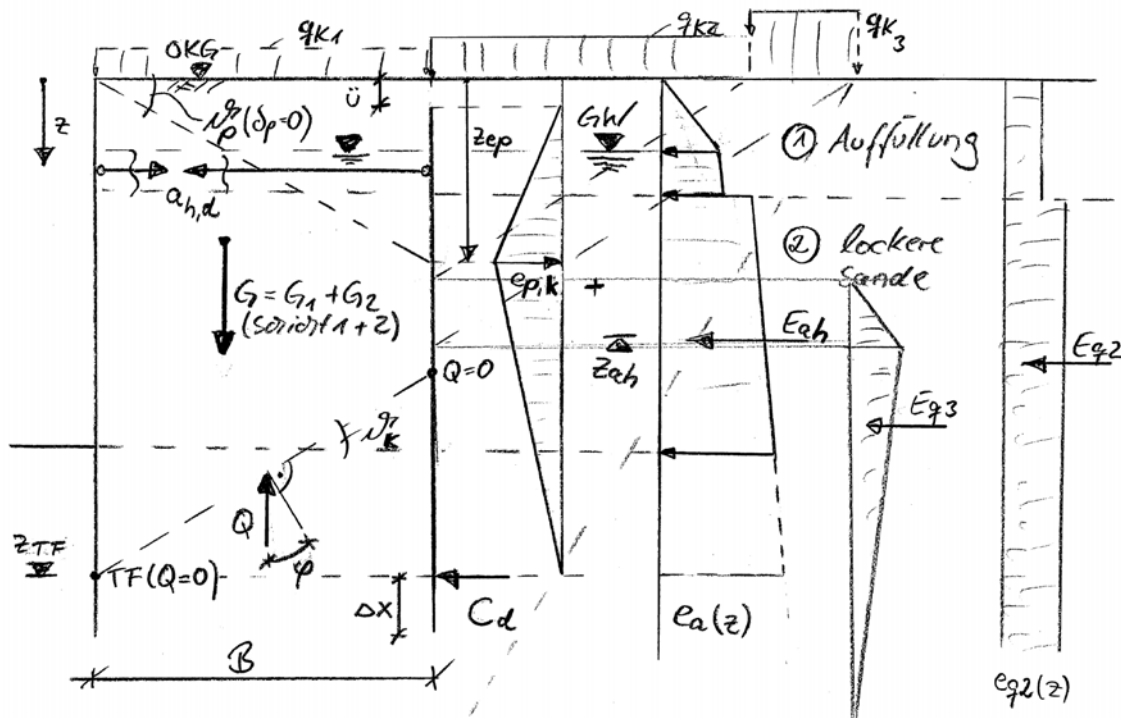 OKG
qK1
qK2
qK3
z
ü
ϑp(δp=0)
zep
GW
① Auffüllung
ah,d
② lockere
Sande
ep,k
+
G = G1 + G2
(Schicht 1 + 2)
Eah
zah
Eq2
Q=0
Eq3
ϑk
Q
zTF
TF(Q=0)
φ
Δx
Cd
ea(z)
B
eq2(z)